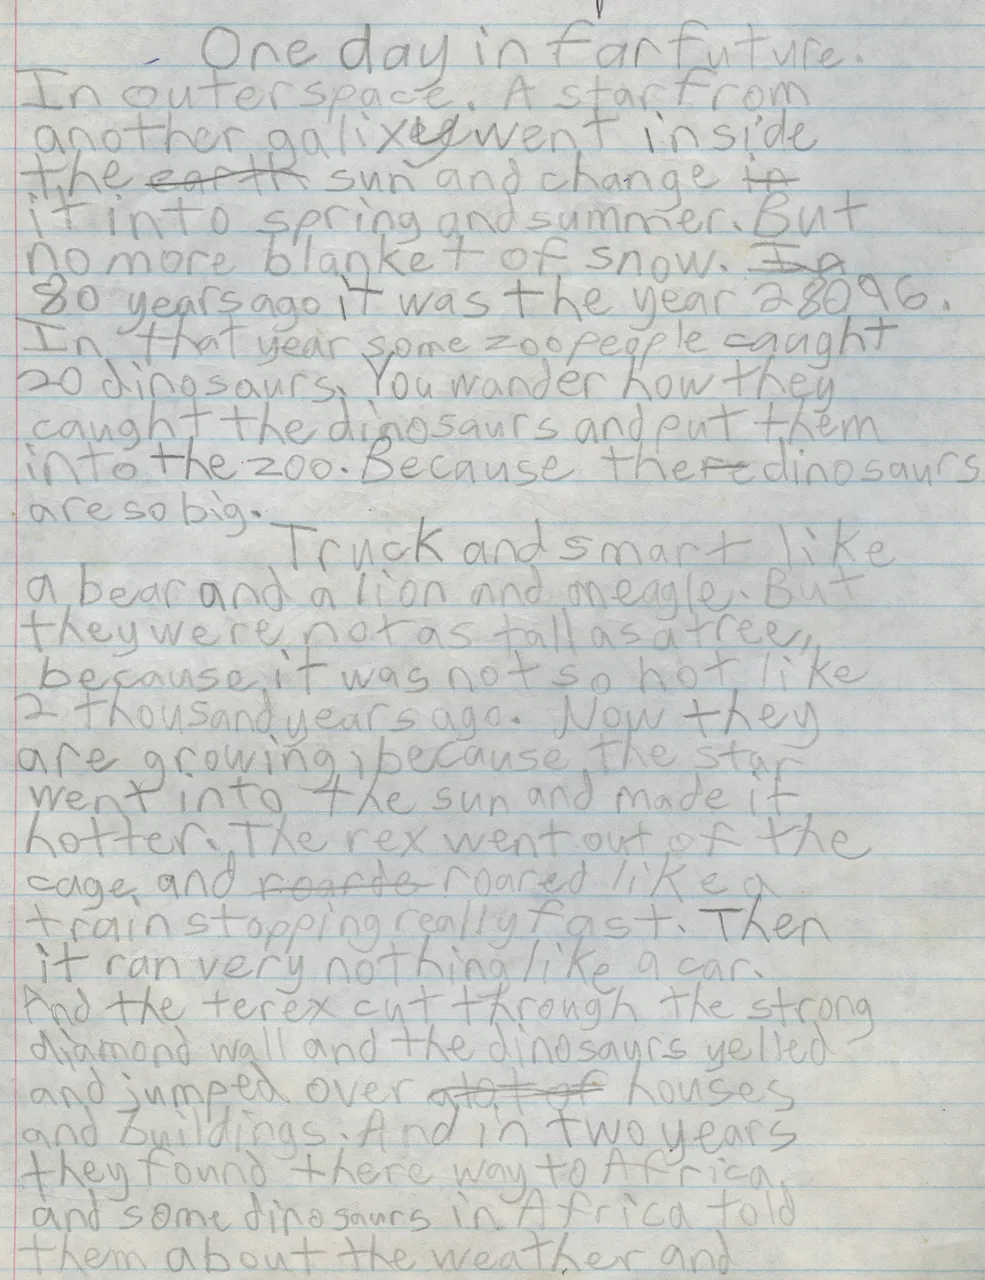 One day in far future.
In outerspace. A star from
another galixy went inside
the earth sun and change in
it into spring and summer. But
no more blanket of snow. In
80 years ago it was the year 28096.
In that year some zoo people caught
20 dinosaurs. You wander how they
caught the dinosaurs and put them
into the zoo. Because there dinosaurs
are so big.
Truck and smart like
a bear and a lion and an eagle. But
they were not as tall as a tree,
because it was not so hot like
2 thousand years ago. Now they
are growing, because the star
went into the sun and made it
hotter. The rex went out of the
cage and roarde roared like a
train stopping really fast. Then
it ran very nothing like a car.
And the terex cut through the strong
diamond wall and the dinosaurs yelled
and jumped over alot of houses
and buildings. And in two years
they found there way to Africa,
and some dinosaurs in Africa told
them about the weather and